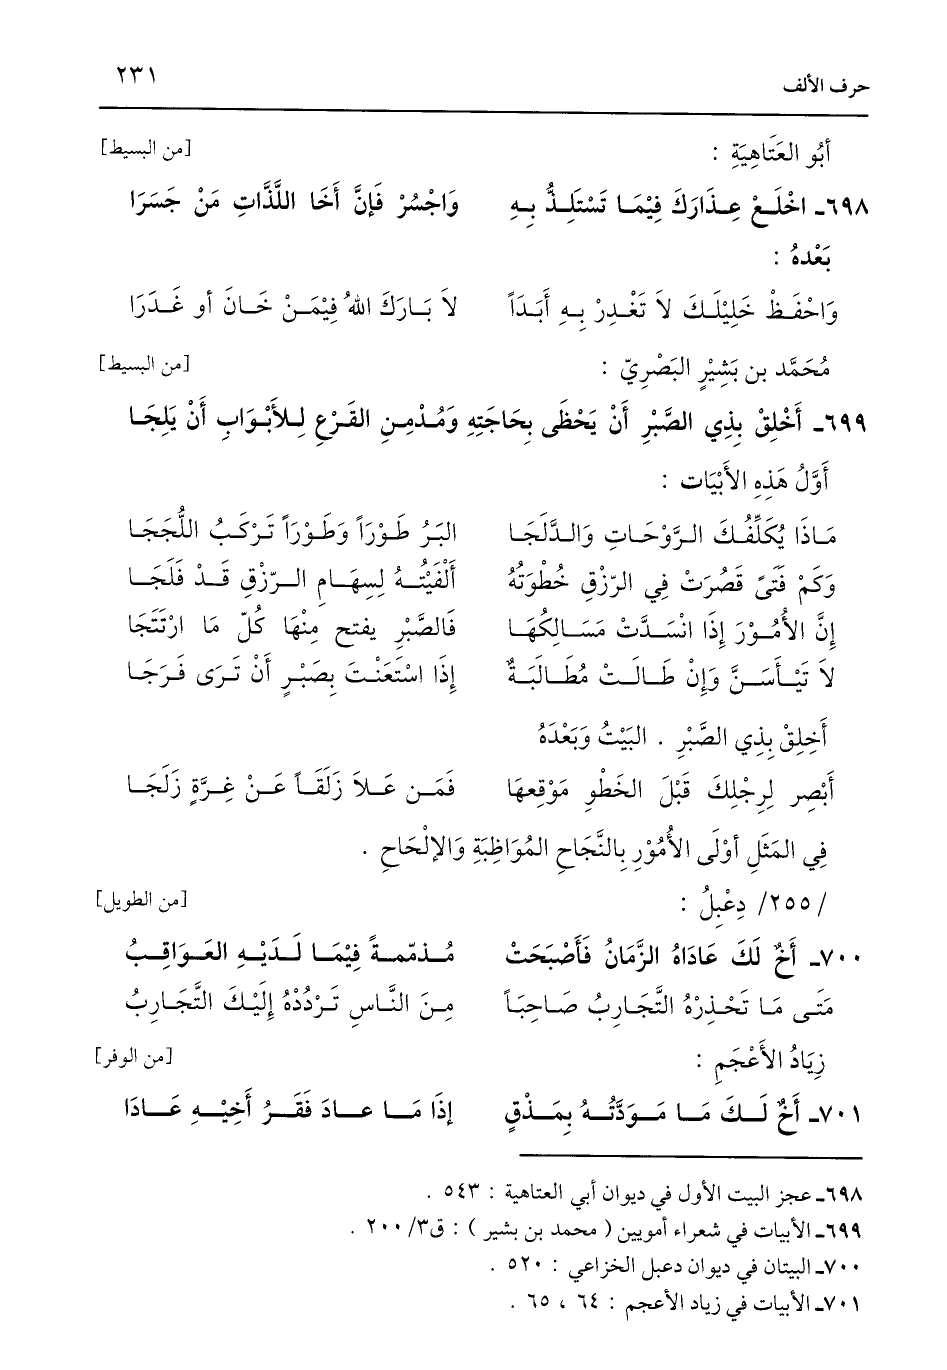 حرف الألف ٢٣١
أبُو العَتَاهِيَةِ : [من البسيط]
٦٩٨ـ اخْلَعْ عِذَارَكَ فِيْمَا تَسْتَلِذُّ بِهِ وَاجْسُرْ فَإِنَّ أَخَا اللَّذَّاتِ مَنْ جَسَرَا
بَعْدهُ :
وَاحْفَظْ خَلِيْلَكَ لاَ تَغْدِرْ بِهِ أَبَدَاً لاَ بَارَكَ اللهُ فِيْمَنْ خَانَ أو غَدَرَا
مُحَمَّد بن بَشِيْرٍ البَصْرِيّ : [من البسيط]
٦٩٩ـ أَخْلِقْ بِذِي الصَّبْرِ أَنْ يَحْظَى بِحَاجَتِهِ وَمُدْمِنِ القَرْعِ لِلأَبْوَابِ أَنْ يَلِجَا
أَوَّلُ هَذِهِ الأَبْيَات :
مَاذَا يُكَلِّفُكَ الرَّوْحَاتِ وَالدَّلَجَا البَرُ طَوْرَاً وَطَوْرَاً تَرْكَبُ اللُّجَجَا
وَكَمْ فَتَىً قَصُرَتْ فِي الرّزْقِ خُطْوَتهُ أَلْفَيْتُهُ لِسِهَامِ الرّزْقِ قَدْ فَلَجَا
إِنَّ الأُمُوْرَ إِذَا انْسَدَّتْ مَسَالِكهَا فَالصَّبْرِ يفتح مِنْهَا كُلّ مَا ارْتَتَجَا
لاَ تَيْأَسَنَّ وَإِنْ طَالَتْ مُطَالَبَةٌ إِذَا اسْتَعَنْتَ بِصَبْرٍ أَنْ تَرَى فَرَجَا
أَخِلِقْ بِذِي الصَّبْرِ . البَيْتُ وَبَعْدَهُ
أَبْصِر لِرِجْلِكَ قَبْلَ الخَطْوِ مَوْقِعهَا فَمَن عَلاَ زَلَقَاً عَنْ غِرَّةٍ زَلَجَا
فِي المَثَلِ أوْلَى الأُمُوْرِ بِالنَّجَاحِ المُوَاظِبَةِ وَالإلْحَاحِ .
/٢٥٥/ دِعْبِلُ : [من الطويل]
٧٠٠ـ أَخٌ لَكَ عَادَاهُ الزَّمَانُ فَأَصْبَحَتْ مُذمّمةً فِيْمَا لَدَيْهِ العَوَاقِبُ
مَتَى مَا تَحْذِرْهُ التَّجَارِبُ صَاحِبَاً مِنَ النَّاسِ تَرْدُدْهُ إِلَيْكَ التَّجَارِبُ
زِيَادُ الأَعْجَمِ : [من الوفر]
٧٠١ـ أَخٌ لَكَ مَا مَوَدَّتُهُ بِمَذْقٍ إِذَا مَا عادَ فَقَرُ أَخِيْهِ عَادَا
٦٩٨ـ عجز البيت الأول في ديوان أبي العتاهية : ٥٤٣ .
٦٩٩ـ الأبيات في شعراء أمويين ( محمد بن بشير ) : ق٣/ ٢٠٠ .
٧٠٠ـ البيتان في ديوان دعبل الخزاعي : ٥٢٠ .
٧٠١ـ الأبيات في زياد الأعجم : ٦٤ ، ٦٥ .